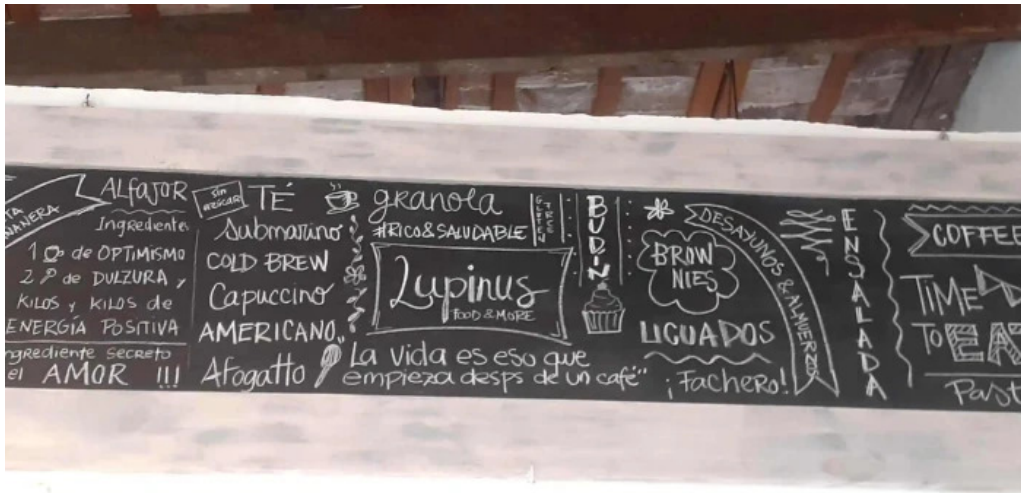 ALFAJOR
Ingredientes
1 de OPTIMISMO
2 de DULZURA y
KILOS y KILOS de
ENERGÍA POSITIVA
ingrediente secreto
el AMOR !!!
sin azúcar
TÉ
Submarino
COLD BREW
Capuccino
AMERICANO
Afogatto
granola
#RICO&SALUDABLE
Lupinus
FOOD & MORE
"La vida es eso que
empieza desps de un café"
GLUTEN
FREE
BUDIN
BROW
NIES
LICUADOS
¡Fachero!
DESAYUNOS & ALMUERZOS
ENSALADA
COFFEE
TIME
TO EAT